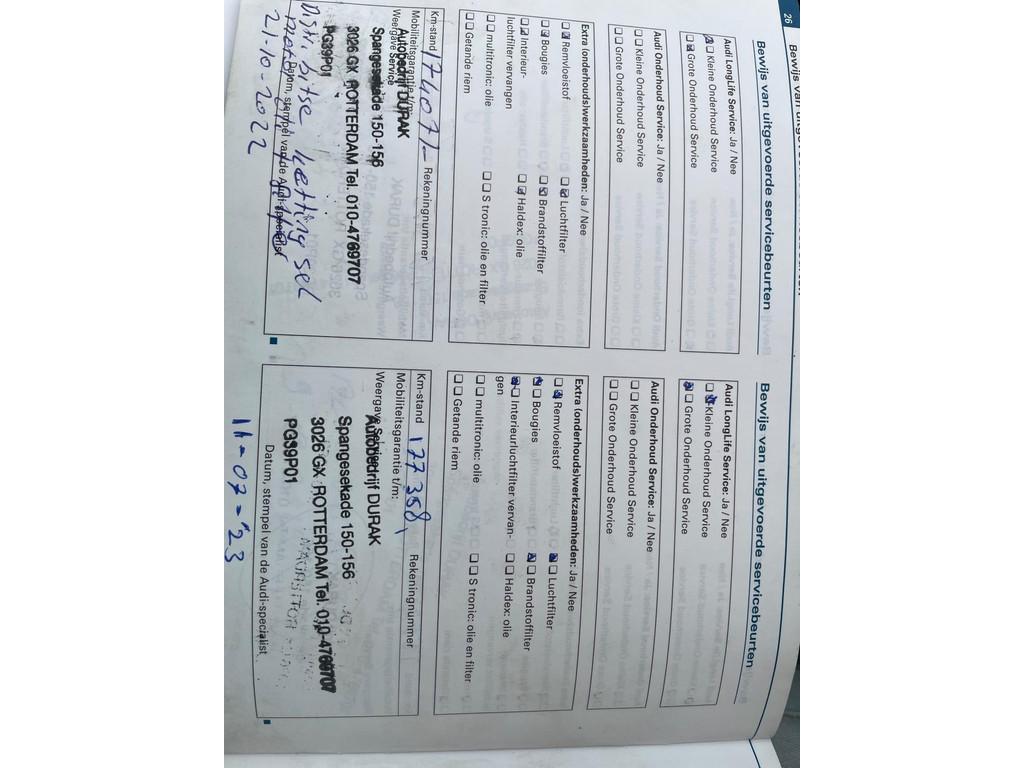 26
Bewijs van uitgevoerde servicebeurten
Audi LongLife Service: Ja / Nee
Kleine Onderhoud Service
Grote Onderhoud Service
Audi Onderhoud Service: Ja / Nee
Kleine Onderhoud Service
Grote Onderhoud Service
Extra (onderhouds)werkzaamheden: Ja / Nee
Remvloeistof
Luchtfilter
Bougies
Brandstoffilter
Interieur-
Haldex: olie
luchtfilter vervangen
multitronic: olie
S tronic: olie en filter
Getande riem
Km-stand 174071- Rekeningnummer
Mobiliteitsgarantie t/m:
Weergave Service
Autobedrijf DURAK
Spangesekade 150-156
3026 GX ROTTERDAM Tel. 010-4769707
PG39P01
Datum, stempel van de Audi-specialist
Distributie ketting set
21-10-2022
Bewijs van uitgevoerde servicebeurten
Audi LongLife Service: Ja / Nee
Kleine Onderhoud Service
Grote Onderhoud Service
Audi Onderhoud Service: Ja / Nee
Kleine Onderhoud Service
Grote Onderhoud Service
Extra (onderhouds)werkzaamheden: Ja / Nee
Remvloeistof
Luchtfilter
Bougies
Brandstoffilter
Interieurluchtfilter vervan-
Haldex: olie
gen
multitronic: olie
S tronic: olie en filter
Getande riem
Km-stand 177358, Rekeningnummer
Mobiliteitsgarantie t/m:
Weergave Service
Autobedrijf DURAK
Spangesekade 150-156
3026 GX ROTTERDAM Tel. 010-4769707
PG39P01
Datum, stempel van de Audi-specialist
14-07-'23